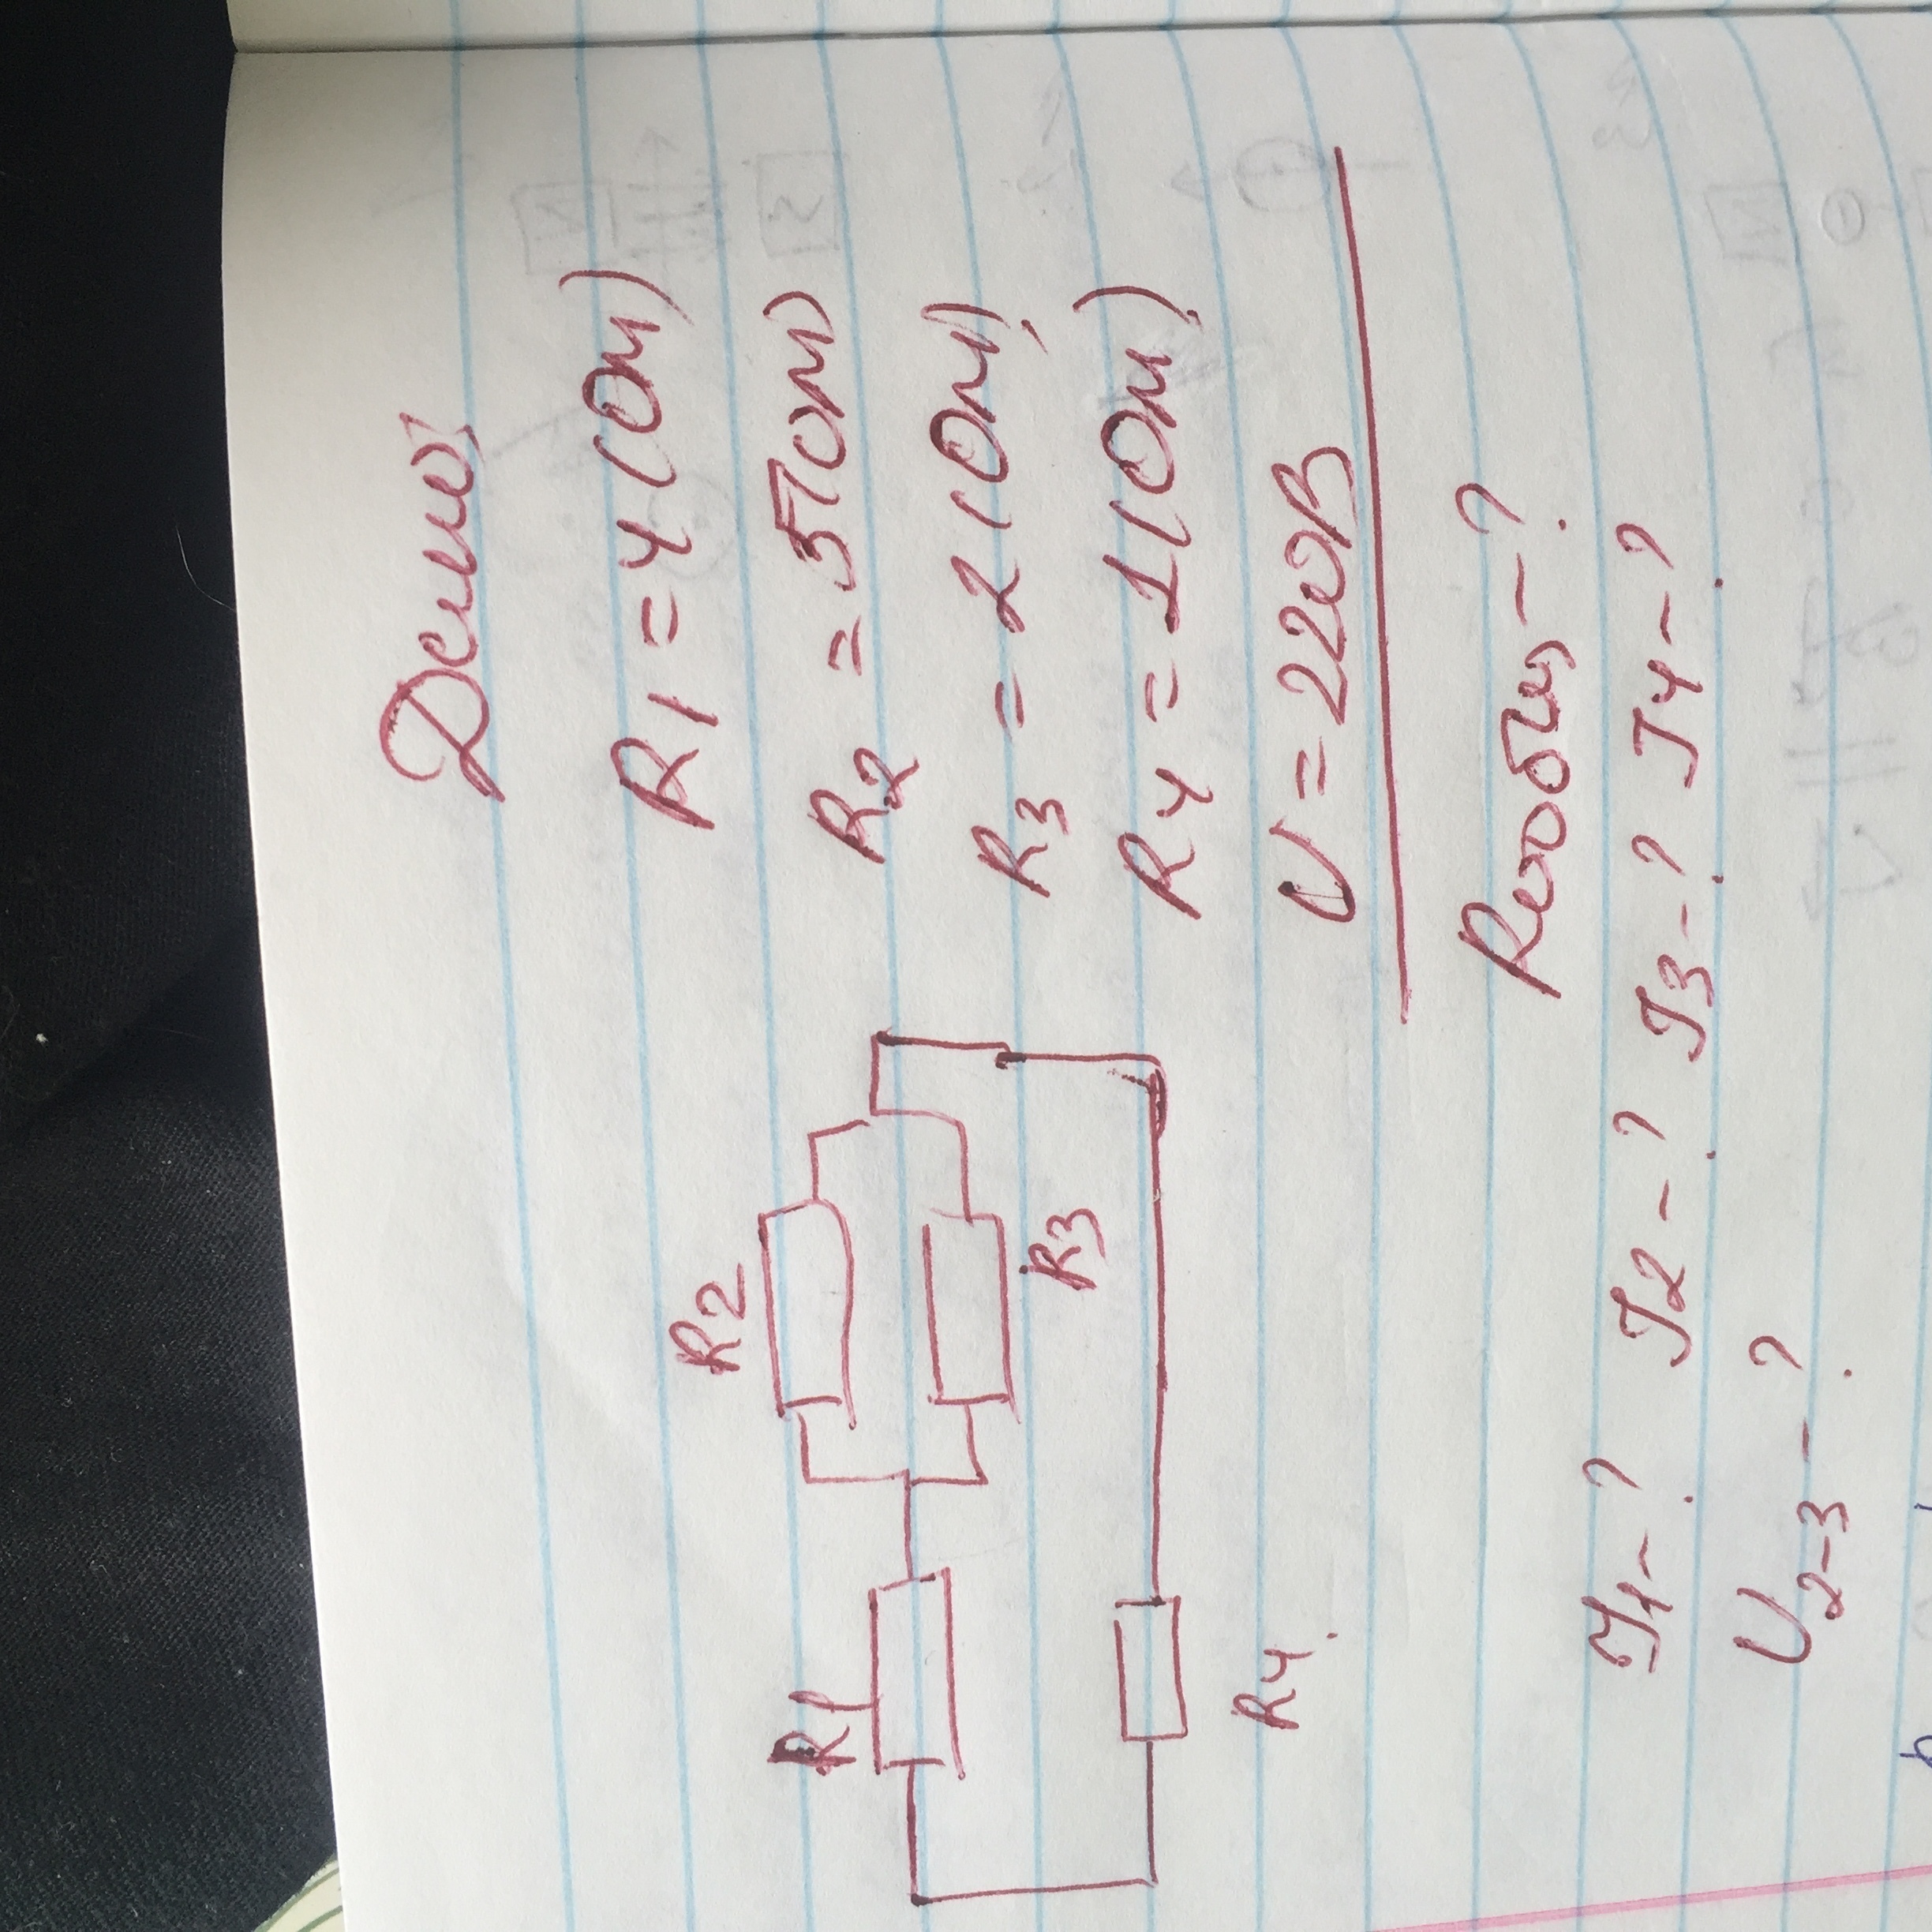 Дано:
R1 = 4 (Ом)
R2 = 5 (Ом)
R3 = 2 (Ом)
R4 = 1 (Ом)
U = 220В
R2
R1
R3
R4.
Rобщ - ?
J1 - ? J2 - ? J3 - ? J4 - ?
U2-3 - ?